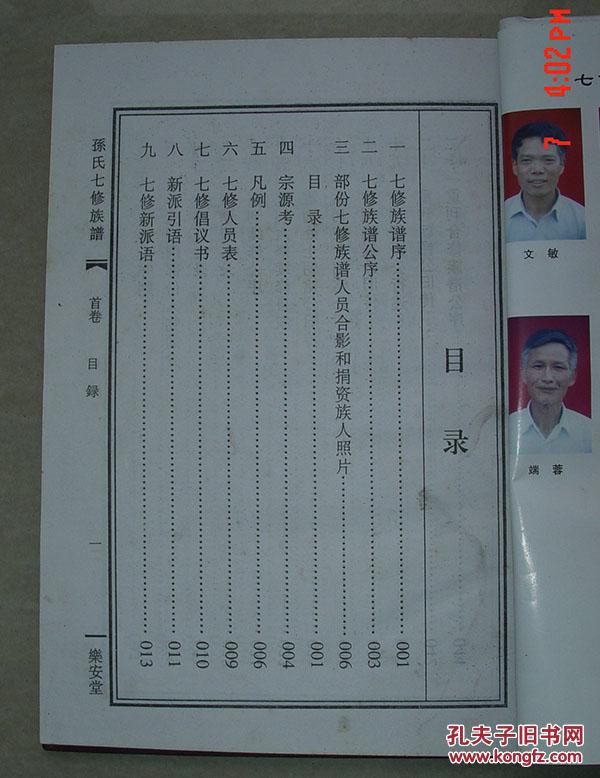 目录
一 七修族谱序 001
二 七修族谱公序 003
三 部份七修族谱人员合影和捐资族人照片 006
目录 001
四 宗源考 004
五 凡例 006
六 七修人员表 009
七 七修倡议书 010
八 新派引语 011
九 七修新派语 013
孫氏七修族譜
首卷
目録
一
樂安堂
七
文敏
端蓉
7 4:02PM
孔夫子旧书网
www.kongfz.com